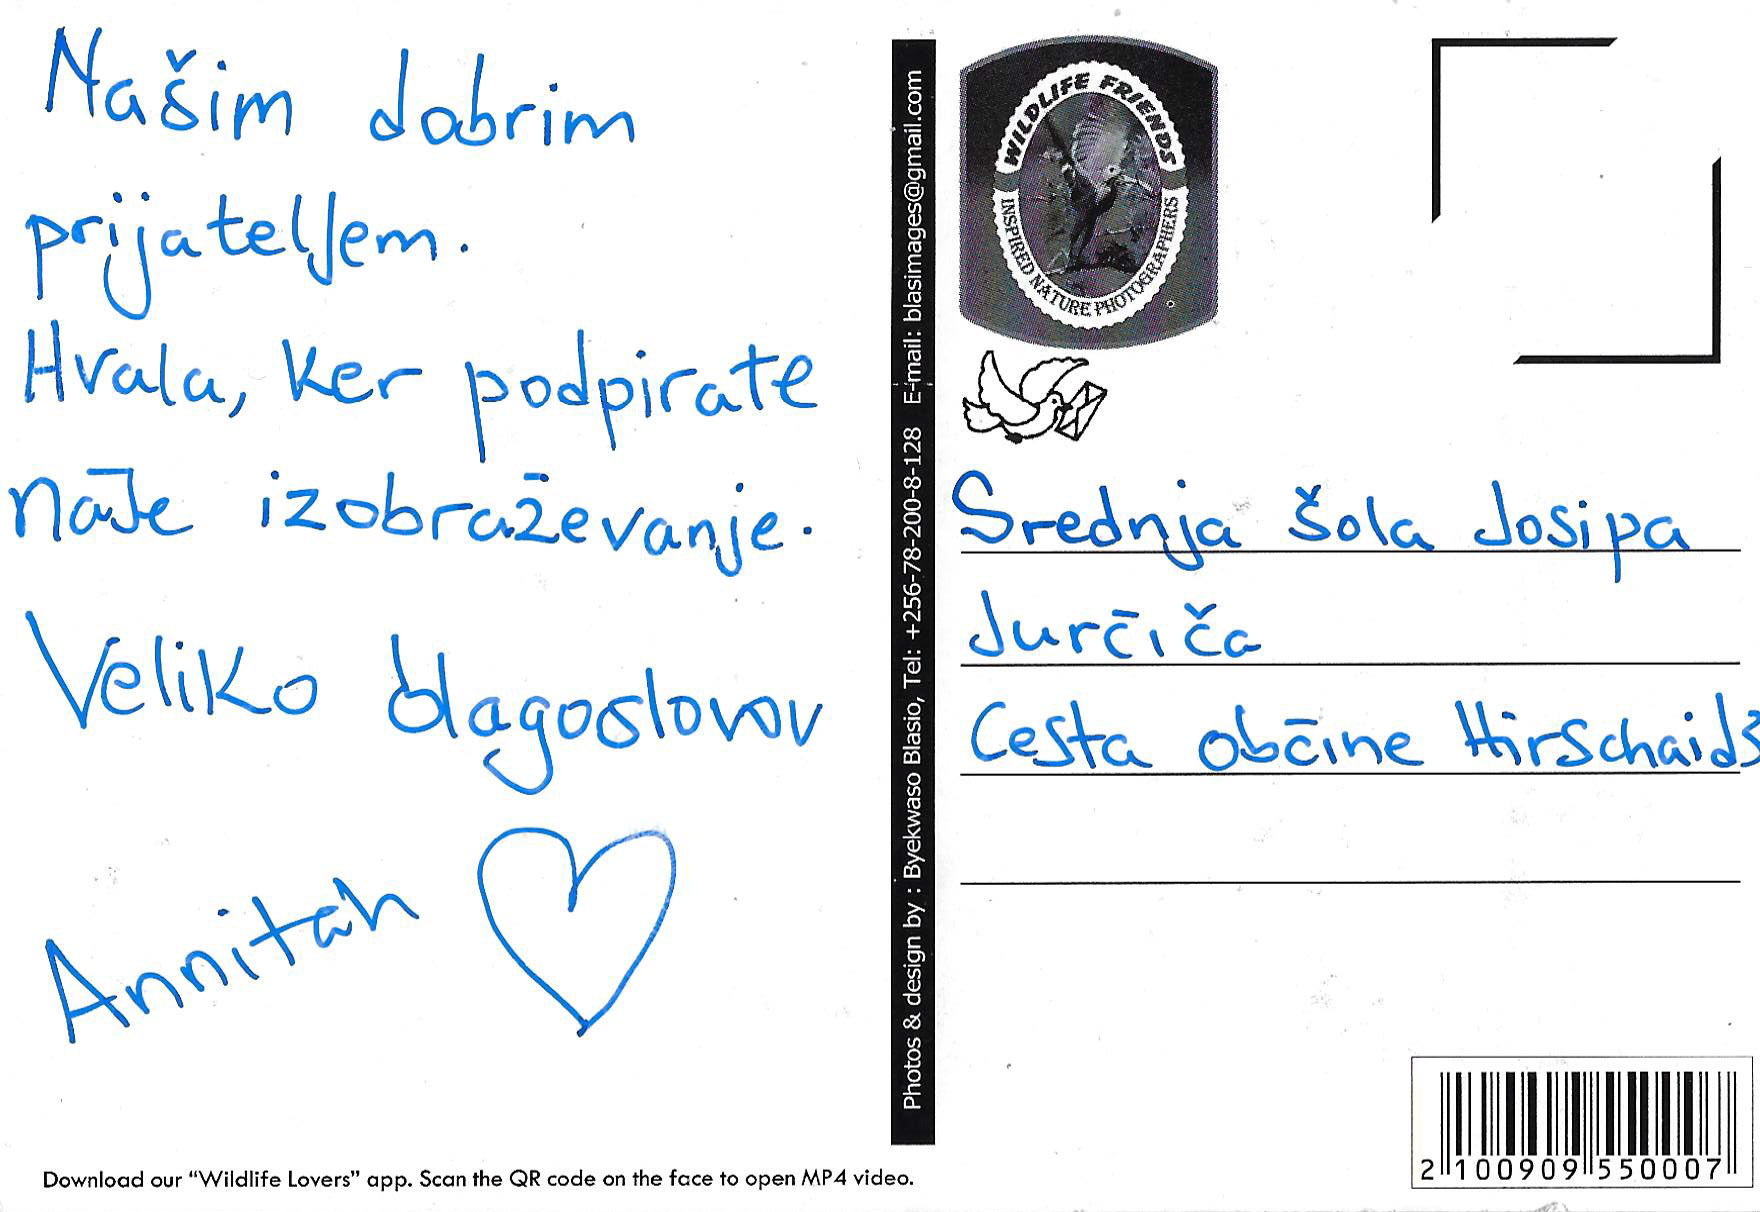 Našim dobrim
prijateljem.
Hvala, ker podpirate
naše izobraževanje.
Veliko blagoslovov
Annitah
Photos & design by : Byekwaso Blasio, Tel: +256-78-200-8-128 E-mail: blasimages@gmail.com
WILDLIFE FRIENDS
INSPIRED NATURE PHOTOGRAPHERS
Srednja šola Josipa
Jurčiča
Cesta občine Hirschaids
Download our “Wildlife Lovers” app. Scan the QR code on the face to open MP4 video.
2 100909 550007